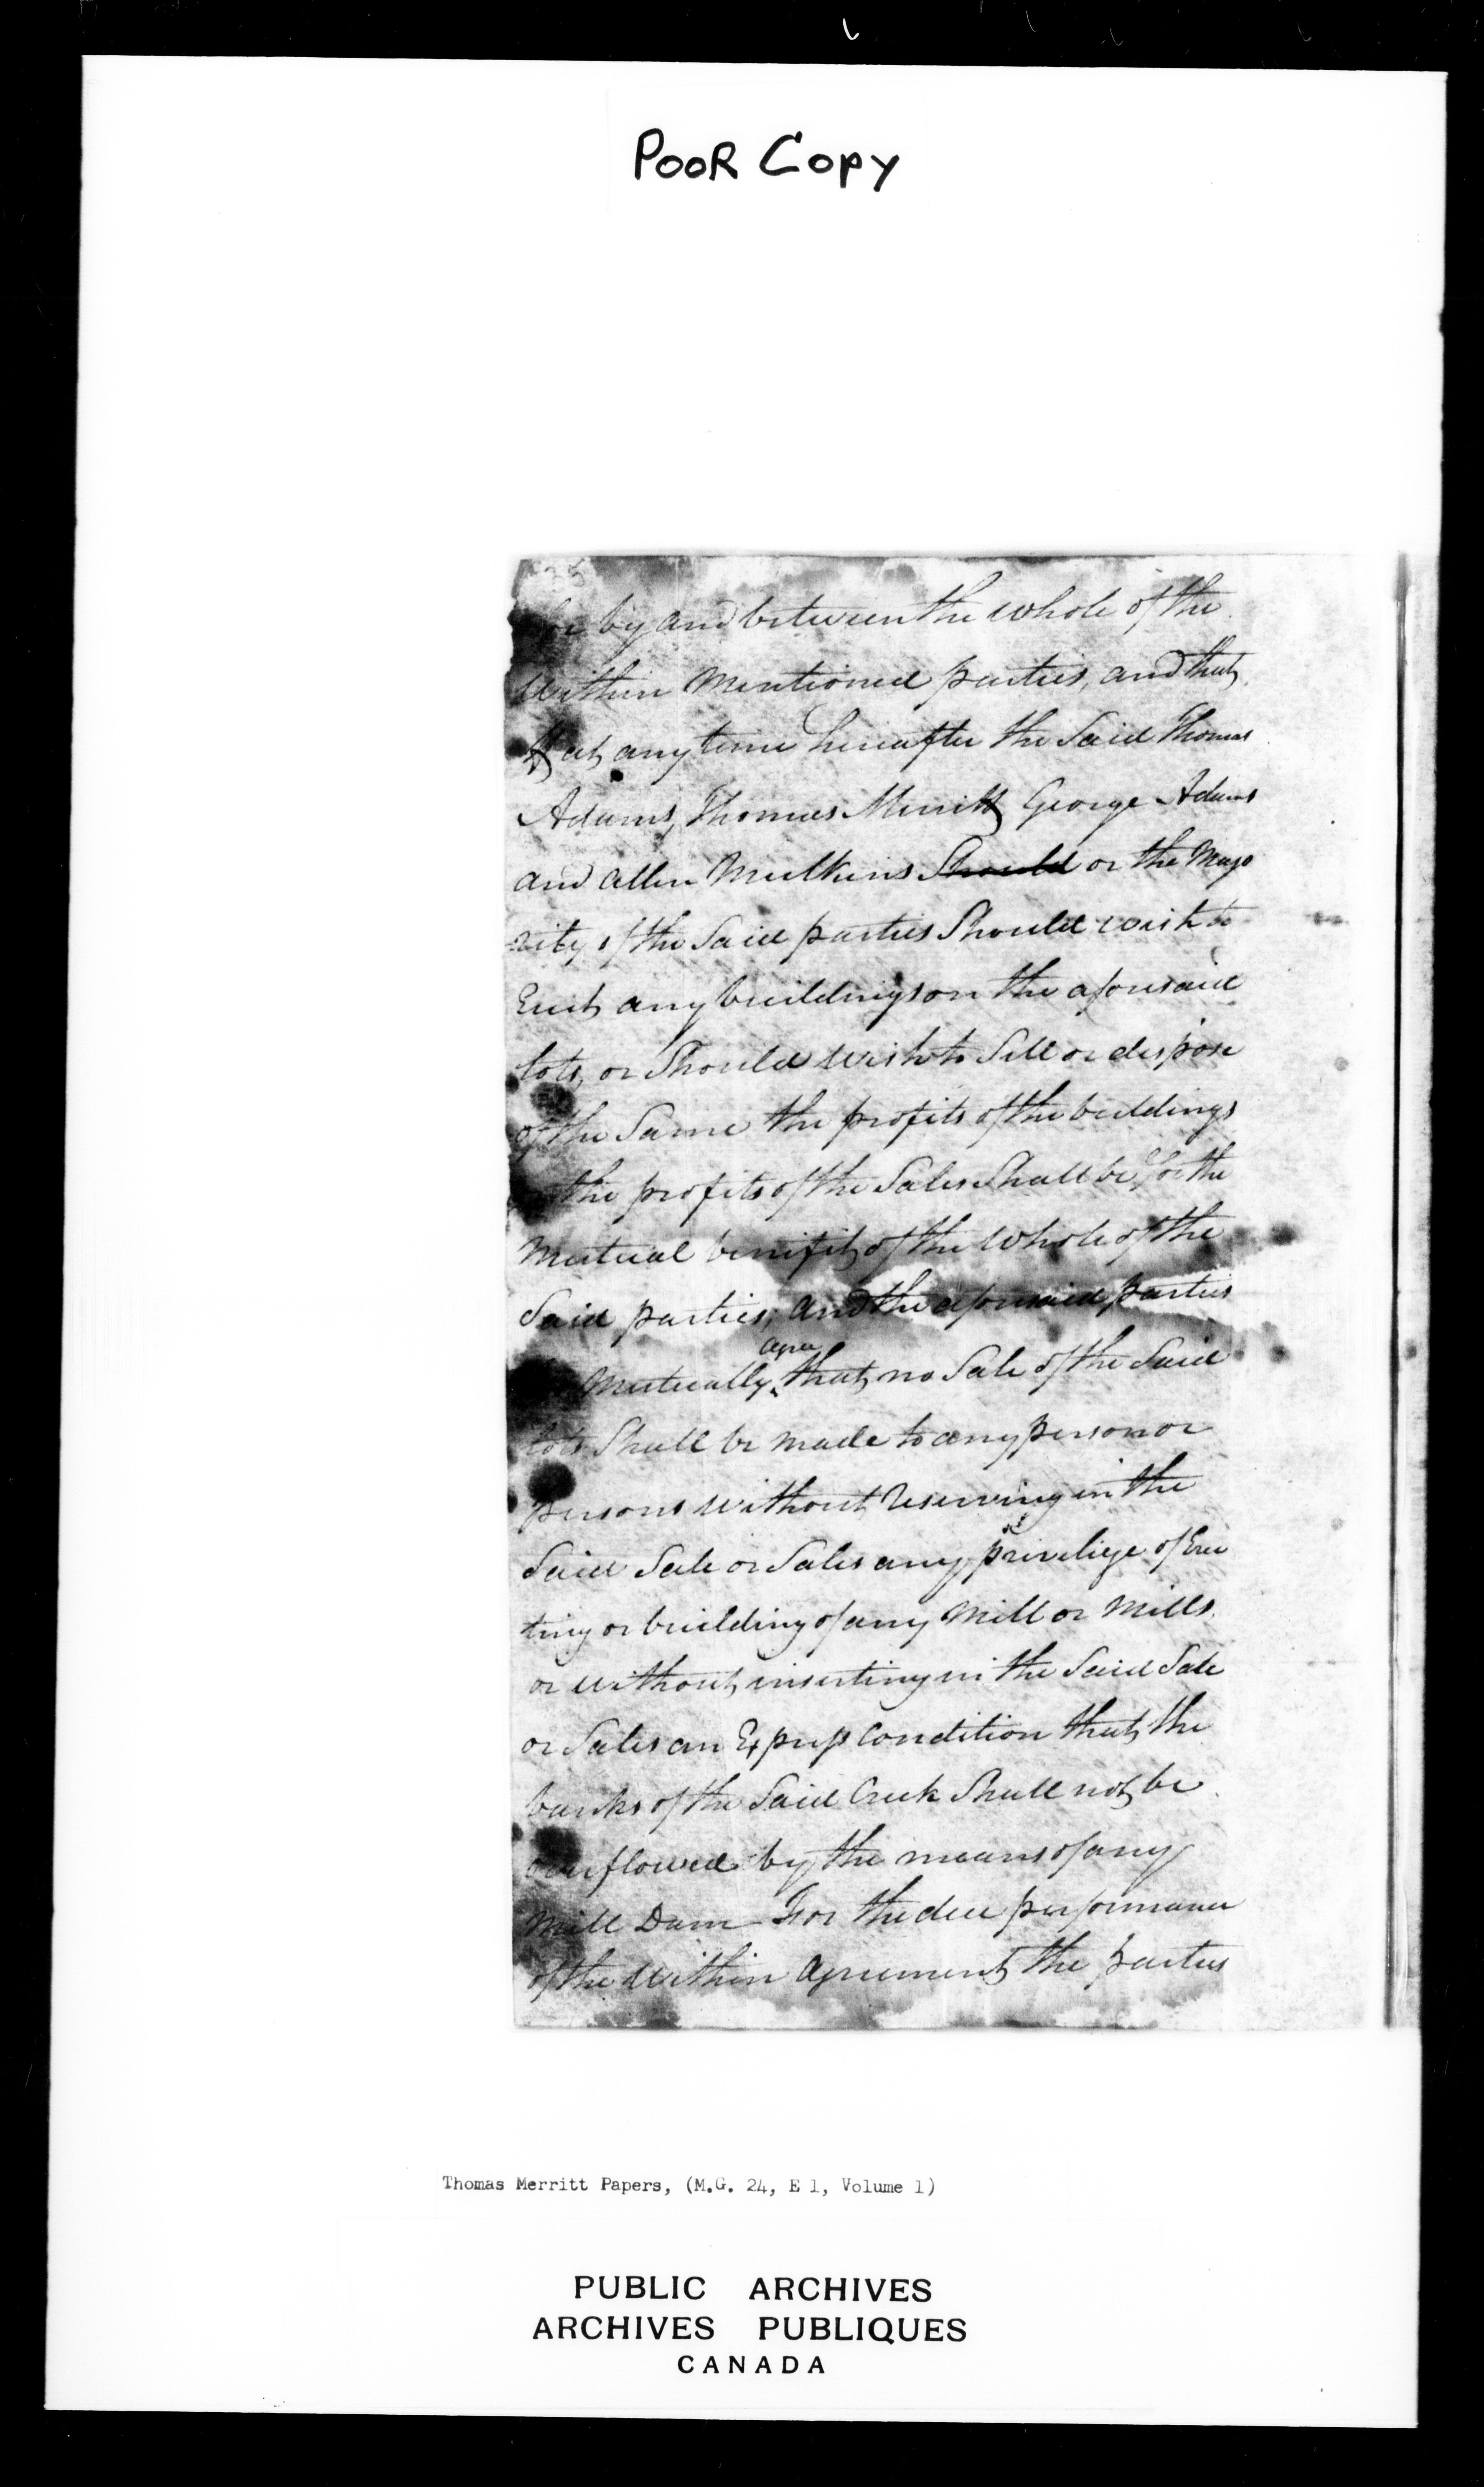 POOR COPY
be by and between the whole of the
Within Mentioned parties, and that
If at any time hereafter the Said Thomas
Adams, Thomas Merritt George Adams
and Allen Mulkins Should or the Majo
rity of the Said parties Should wish to
Erect any buildings on the aforesaid
lots, or Should wish to Sell or dispose
of the Same the profits of the buildings
the profits of the Sales Shall be for the
Mutual benifit of the whole of the
Said parties; and the aforesaid parties
agree
Mutually that no Sale of the Said
lots Shall be made to any person or
persons without Reserving in the
Said Sale or Sales any priveliege of Erec
ting or building of any Mill or Mills
or without inserting in the Said Sale
or Sales an Express Condition that the
banks of the Said Creek Shall not be
overflowed by the means of any
Mill Dam For the due performance
of the Within Agreement the parties
Thomas Merritt Papers, (M.G. 24, E 1, Volume 1)
PUBLIC ARCHIVES
ARCHIVES PUBLIQUES
CANADA